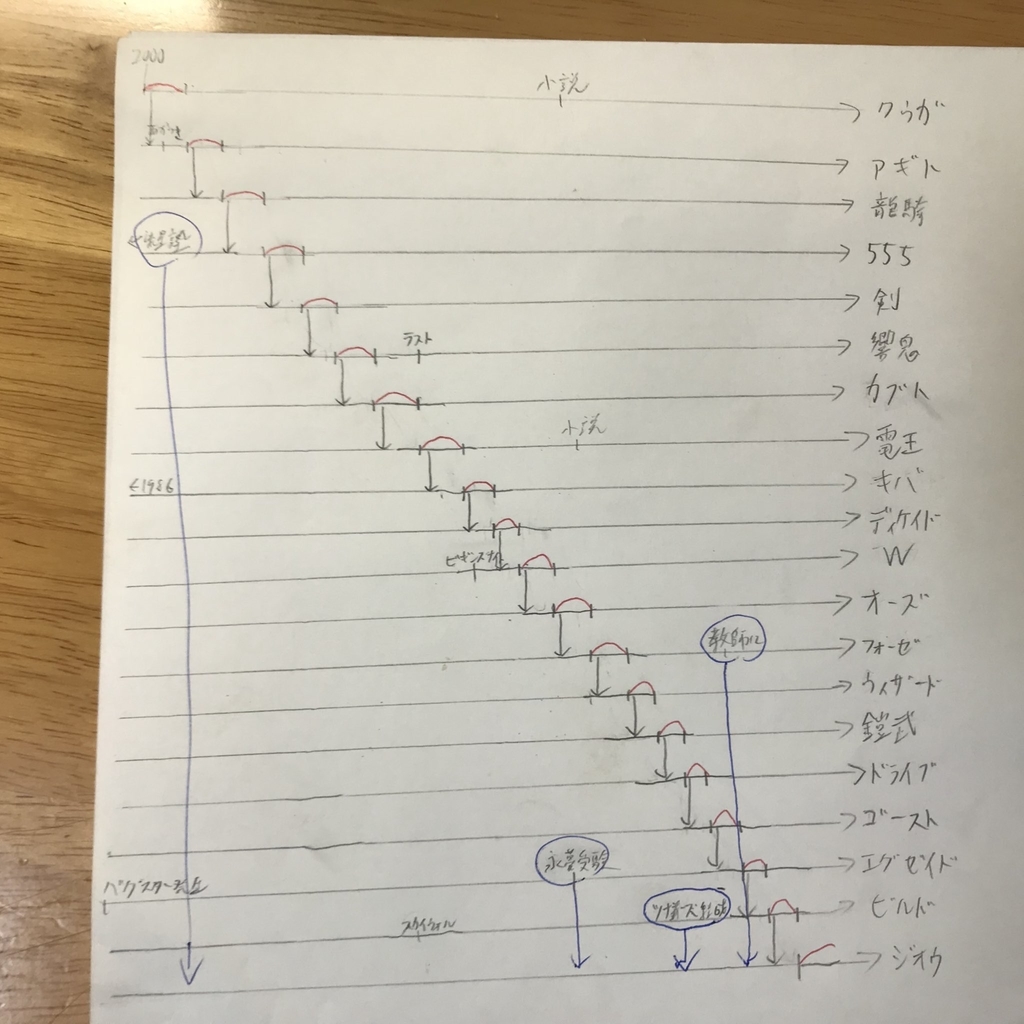 2000
小説
クウガ
アギト
龍騎
555
剣
ラスト
響鬼
カブト
小説
電王
1986
キバ
ディケイド
ビギンズナイト
W
オーズ
教師に
フォーゼ
ウィザード
鎧武
ドライブ
ゴースト
永夢受験
エグゼイド
バグスター
ビルド
スカイウォール
ジオウ